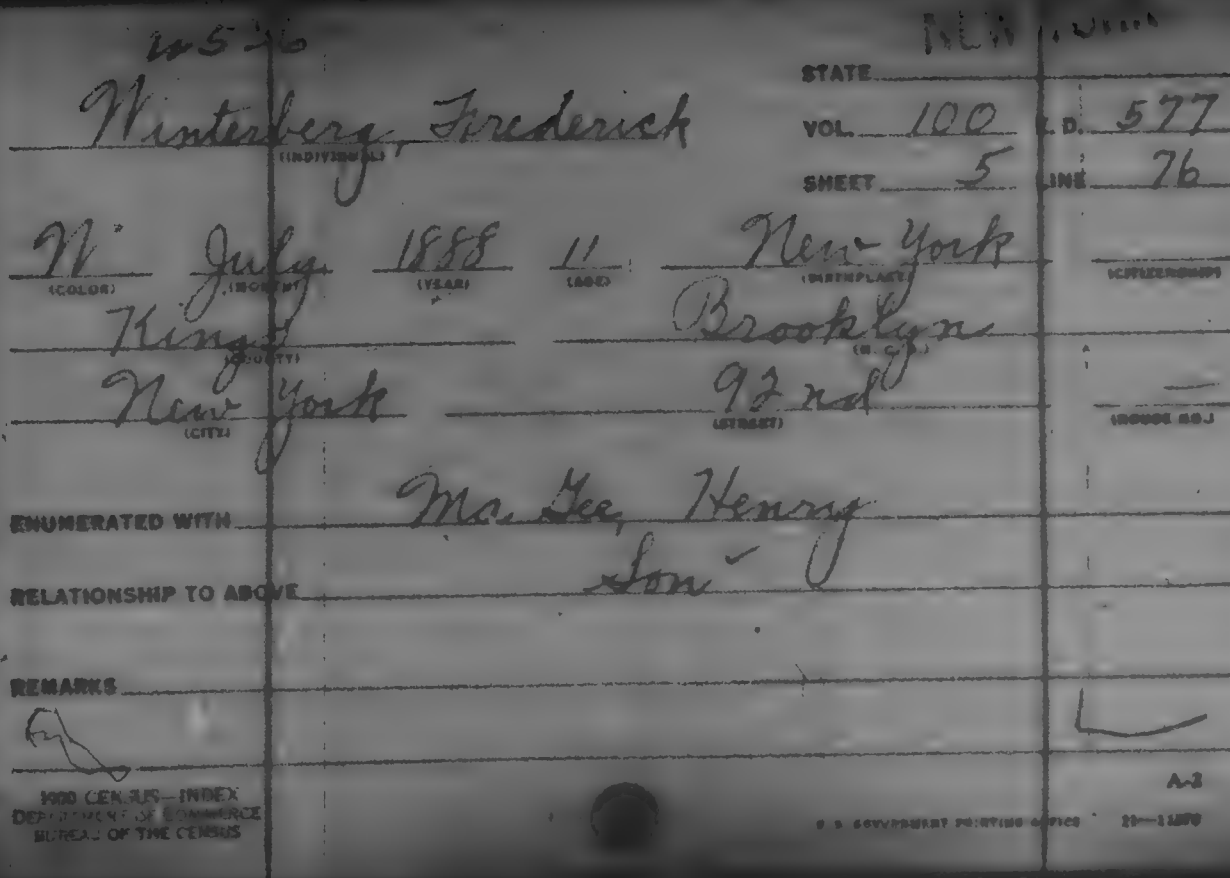 W 5-6 NEW YORK
STATE
Winterberg, Frederick
(INDIVIDUAL)
VOL. 100 E. D. 577
SHEET 5 LINE 76
W July 1888 11 New York
(COLOR) (MONTH) (YEAR) (AGE) (BIRTHPLACE) (CITIZENSHIP)
Kings Brooklyn
(COUNTY) (M. C. D.)
New York 92 nd —
(CITY) (STREET) (HOUSE NO.)
ENUMERATED WITH Mc. Gee, Henry
RELATIONSHIP TO ABOVE Son
REMARKS
A-2
1900 CENSUS—INDEX
DEPARTMENT OF COMMERCE
BUREAU OF THE CENSUS
U. S. GOVERNMENT PRINTING OFFICE